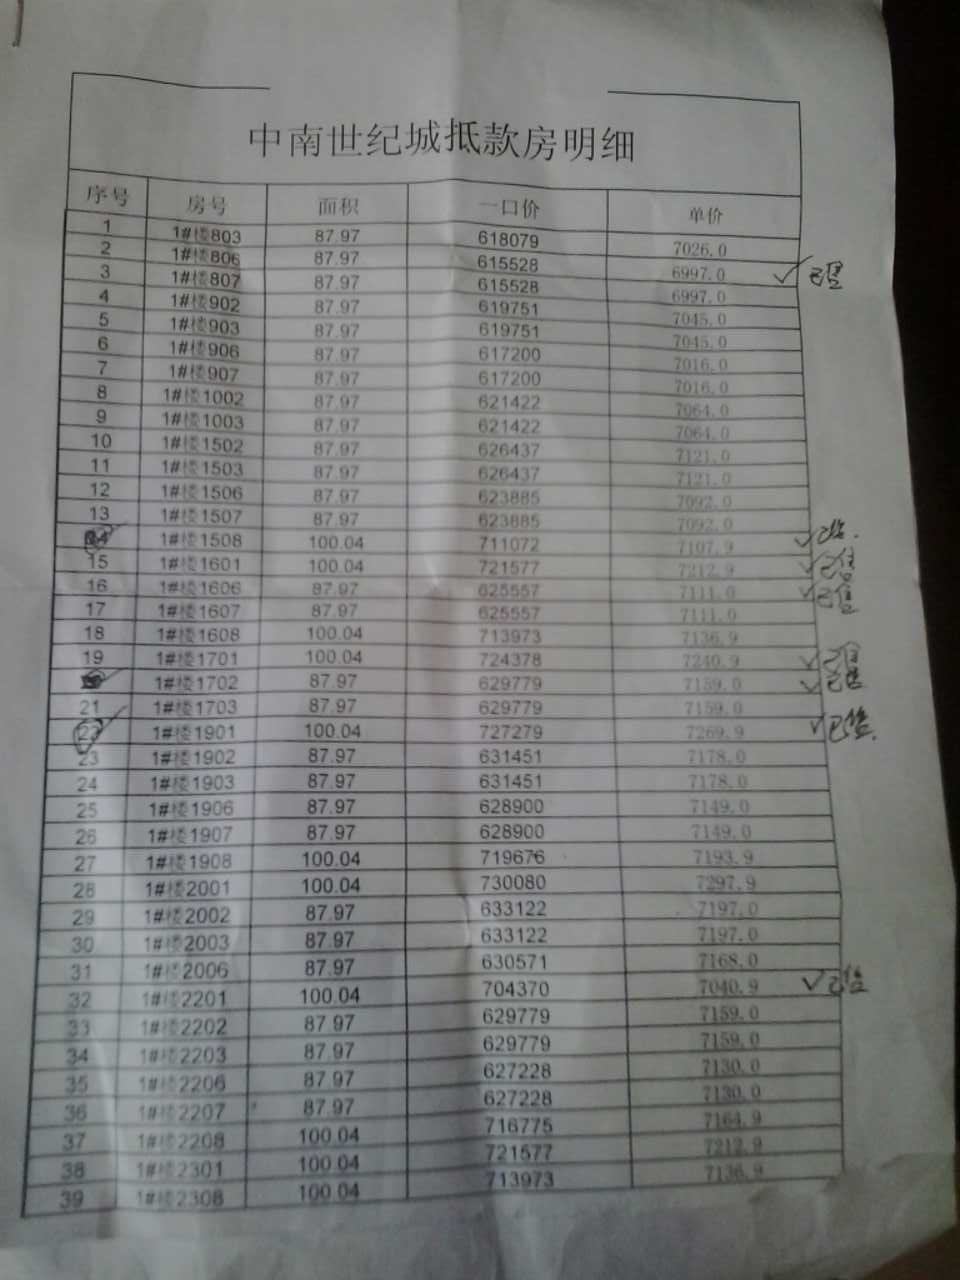 中南世纪城抵款房明细
序号 房号 面积 一口价 单价
1 1#楼803 87.97 618079 7026.0
2 1#楼806 87.97 615528 6997.0 ✓已售
3 1#楼807 87.97 615528 6997.0
4 1#楼902 87.97 619751 7045.0
5 1#楼903 87.97 619751 7045.0
6 1#楼906 87.97 617200 7016.0
7 1#楼907 87.97 617200 7016.0
8 1#楼1002 87.97 621422 7064.0
9 1#楼1003 87.97 621422 7064.0
10 1#楼1502 87.97 626437 7121.0
11 1#楼1503 87.97 626437 7121.0
12 1#楼1506 87.97 623885 7092.0
13 1#楼1507 87.97 623885 7092.0
14 1#楼1508 100.04 711072 7107.9 ✓
15 1#楼1601 100.04 721577 7212.9 ✓已售
16 1#楼1606 87.97 625557 7111.0 ✓已售
17 1#楼1607 87.97 625557 7111.0
18 1#楼1608 100.04 713973 7136.9
19 1#楼1701 100.04 724378 7240.9 ✓已售
1#楼1702 87.97 629779 7159.0 ✓已售
21 1#楼1703 87.97 629779 7159.0
22 1#楼1901 100.04 727279 7269.9 ✓已售
23 1#楼1902 87.97 631451 7178.0
24 1#楼1903 87.97 631451 7178.0
25 1#楼1906 87.97 628900 7149.0
26 1#楼1907 87.97 628900 7149.0
27 1#楼1908 100.04 719676 7193.9
28 1#楼2001 100.04 730080 7297.9
29 1#楼2002 87.97 633122 7197.0
30 1#楼2003 87.97 633122 7197.0
31 1#楼2006 87.97 630571 7168.0
32 1#楼2201 100.04 704370 7040.9 ✓已售
33 1#楼2202 87.97 629779 7159.0
34 1#楼2203 87.97 629779 7159.0
35 1#楼2206 87.97 627228 7130.0
36 1#楼2207 87.97 627228 7130.0
37 1#楼2208 100.04 716775 7164.9
38 1#楼2301 100.04 721577 7212.9
39 1#楼2308 100.04 713973 7136.9